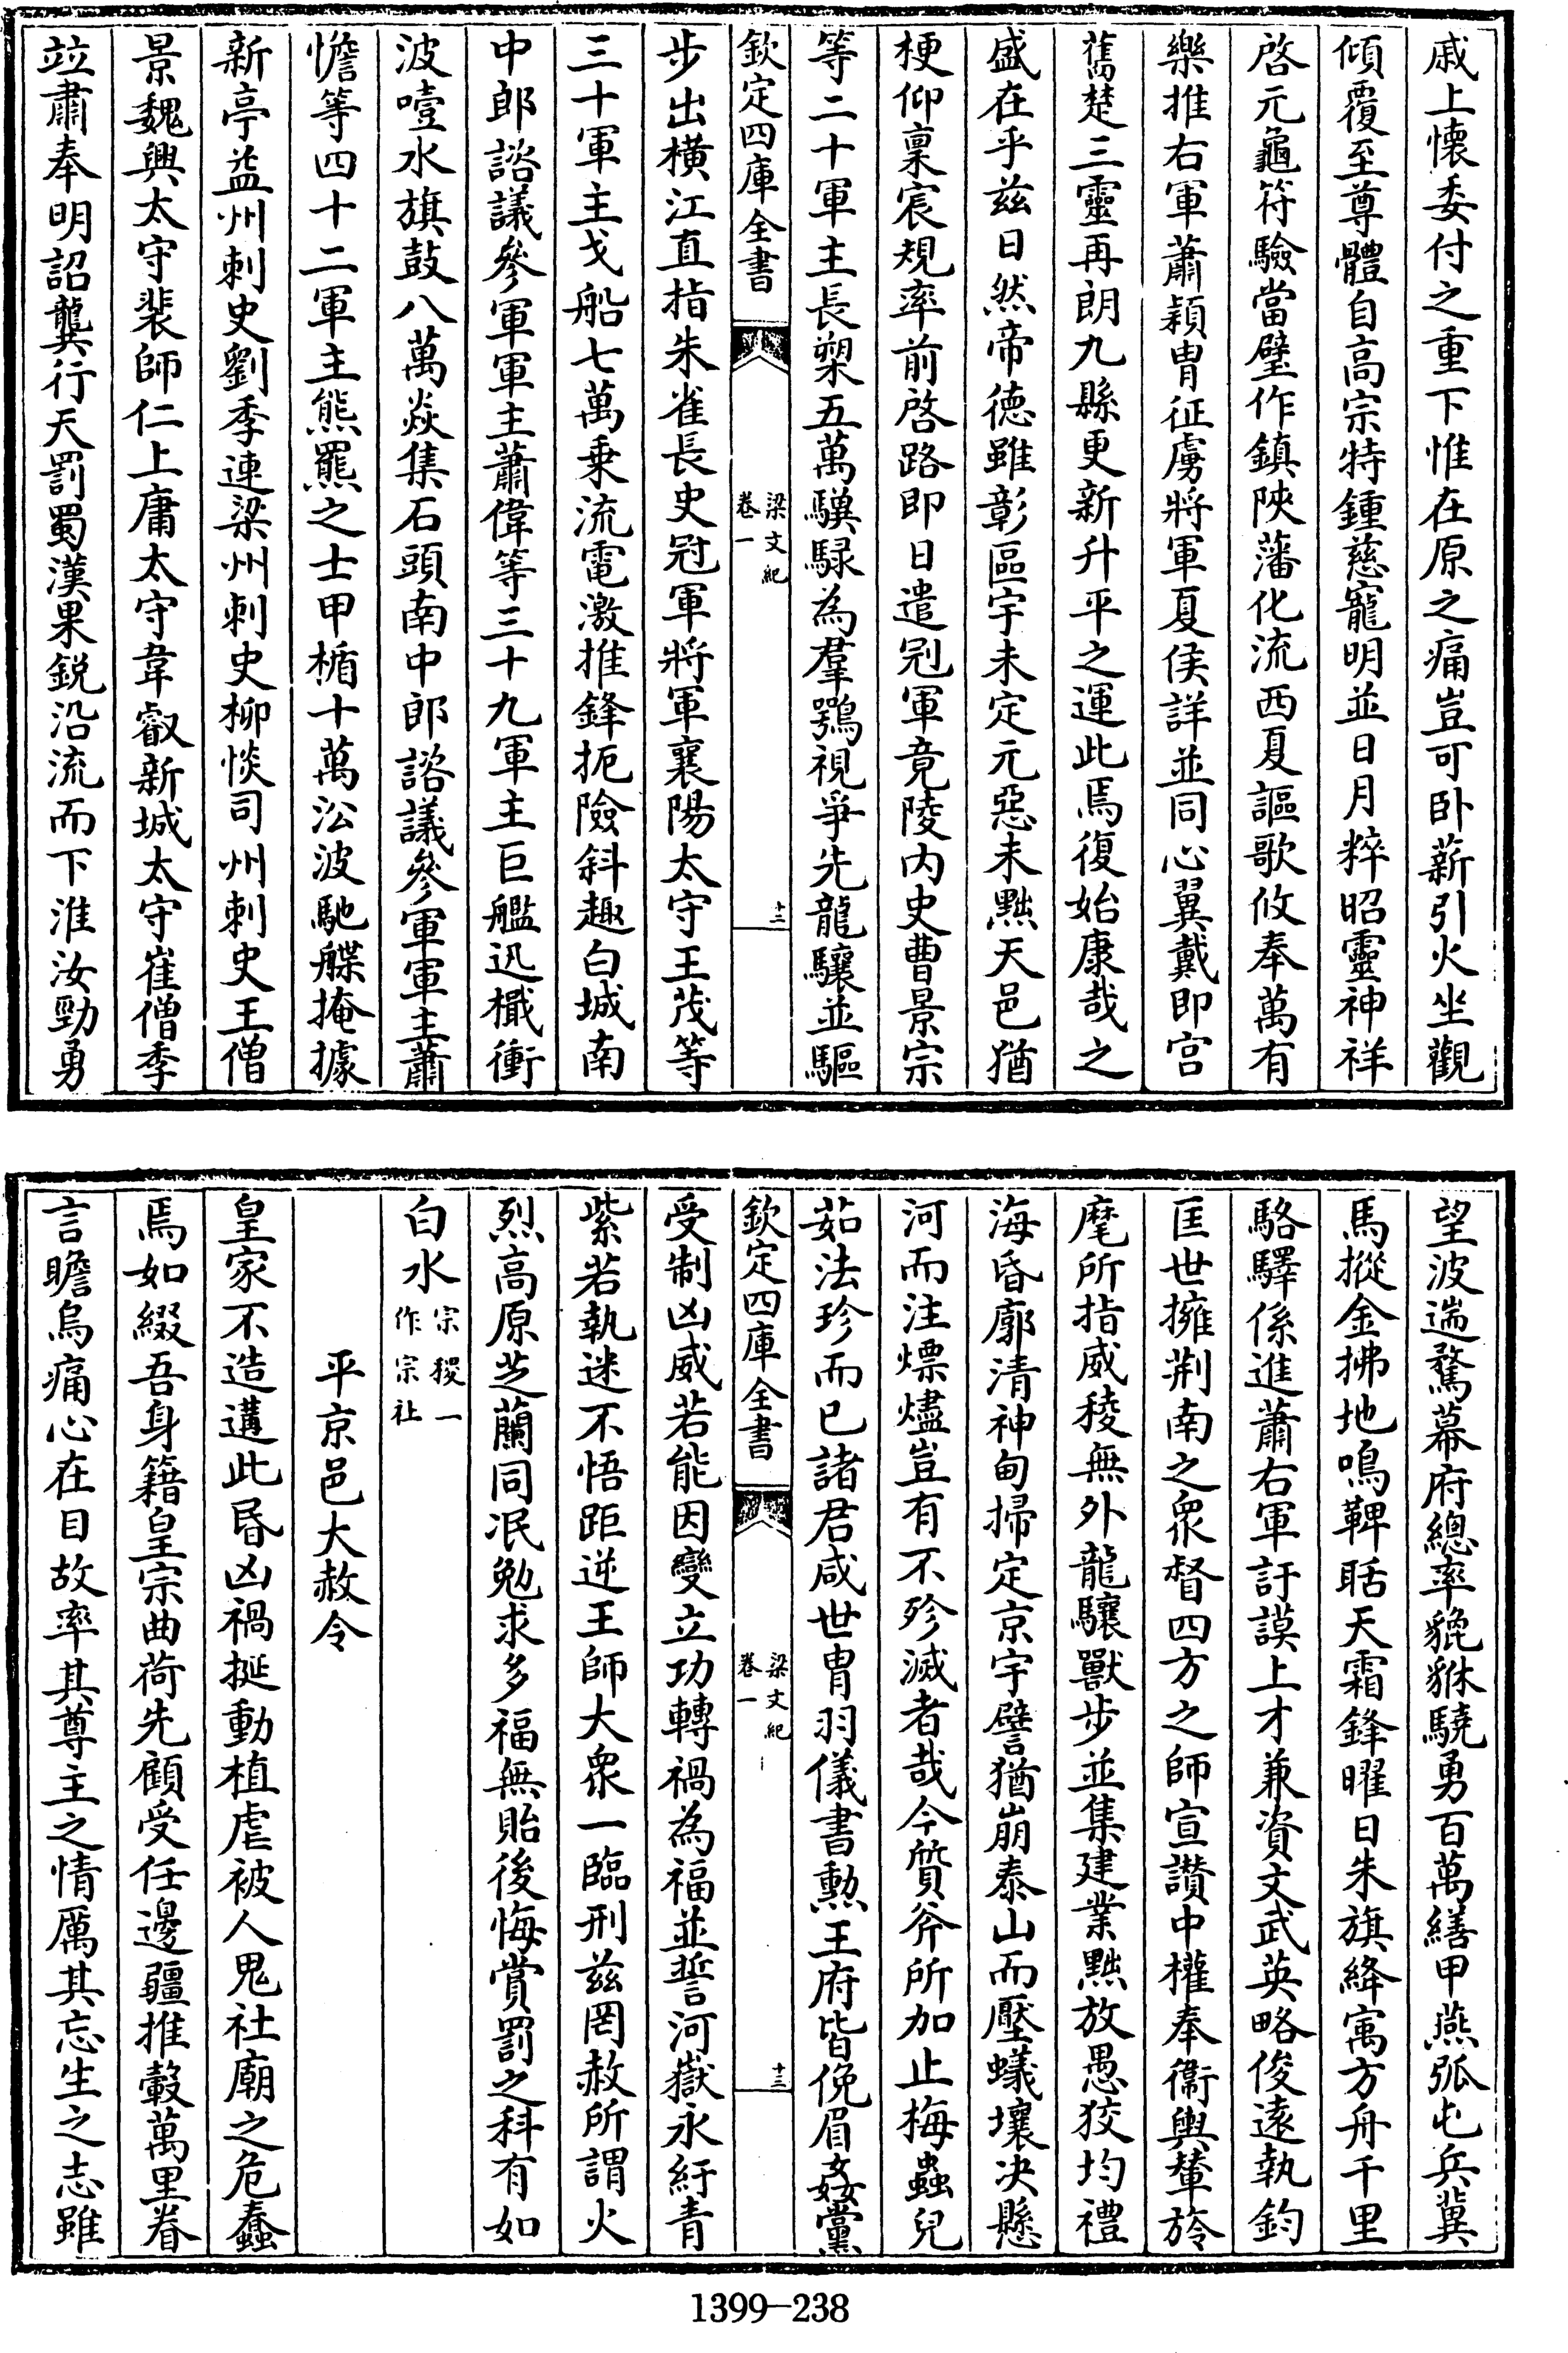 戚上懷委付之重下惟在原之痛豈可卧薪引火坐觀
傾覆至尊體自高宗特鍾慈寵明並日月粹昭靈神祥
啓元龜符驗當璧作鎮陜藩化流西夏謳歌攸奉萬有
樂推右軍蕭穎胄征虜將軍夏侯詳並同心翼戴即宫
舊楚三靈再朗九縣更新升平之運此焉復始康哉之
盛在乎兹日然帝徳雖彰區宇未定元惡未黜天邑猶
梗仰稟宸規率前啓路即日遣冠軍竟陵内史曹景宗
等二十軍主長槊五萬驥騄為羣鶚視爭先龍驤並驅
欽定四庫全書
梁文紀
卷一
十二
步出横江直指朱雀長史冠軍將軍襄陽太守王茂等
三十軍主戈船七萬乗流電激推鋒扼險斜趣白城南
中郎諮議參軍軍主蕭偉等三十九軍主巨艦迅檝衝
波噎水旗鼓八萬焱集石頭南中郎諮議參軍軍主蕭
憺等四十二軍主熊羆之士甲楯十萬㳂波馳艓掩據
新亭益州刺史劉季連梁州刺史柳惔司州刺史王僧
景魏興太守裴師仁上庸太守韋叡新城太守崔僧季
竝肅奉明詔龔行天罰蜀漢果鋭沿流而下淮汝勁勇
望波遄騖幕府總率貔貅驍勇百萬繕甲燕弧屯兵冀
馬摐金拂地鳴鞞聒天霜鋒曜日朱旗絳寓方舟千里
駱驛係進蕭右軍訏謨上才兼資文武英略俊遠執鈞
匡世擁荆南之衆督四方之師宣讃中權奉衞輿輦旍
麾所指威稜無外龍驤獸步並集建業黜放愚狡均禮
海昏廓清神甸掃定京宇譬猶崩泰山而壓蟻壤决懸
河而注熛燼豈有不殄滅者哉今質斧所加止梅蟲兒
茹法珍而已諸君咸世胄羽儀書勲王府皆俛眉姦黨
欽定四庫全書
梁文紀
卷一
十三
受制凶威若能因變立功轉禍為福並誓河嶽永紆青
紫若執迷不悟距逆王師大衆一臨刑兹罔赦所謂火
烈高原芝蘭同泯勉求多福無貽後悔賞罰之科有如
白水宗稷一作宗社
平京邑大赦令
皇家不造遘此昏凶禍挻動植虐被人鬼社廟之危蠢
焉如綴吾身籍皇宗曲荷先顧受任邊疆推轂萬里眷
言瞻烏痛心在目故率其尊主之情厲其忘生之志雖
1399—238